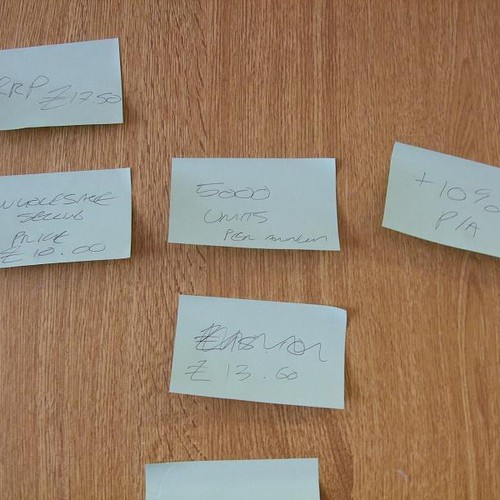 RRP £17.50
WHOLESALE
SELLING
PRICE
£10.00
5000
UNITS
PER ANNUM
+10%
P/A
£13.60